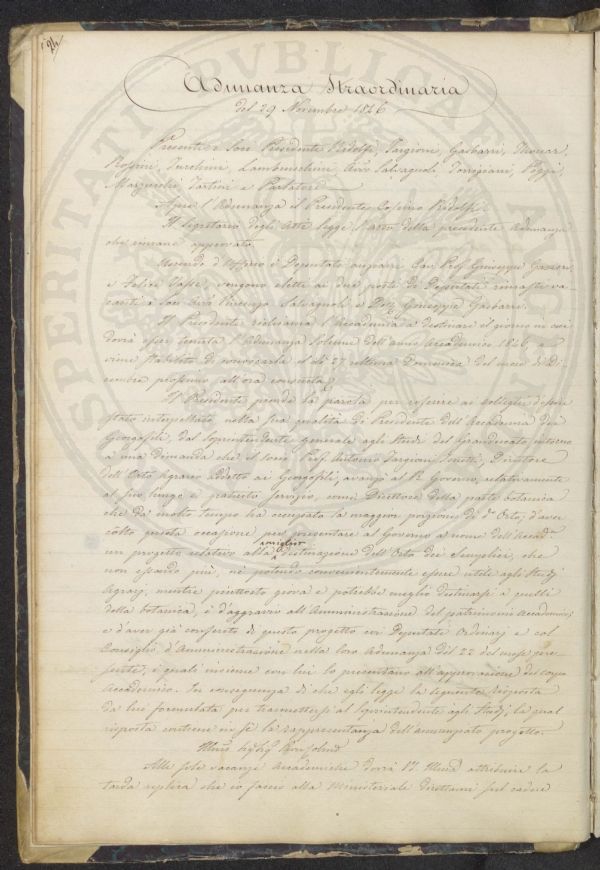 94
Adunanza Straordinaria
del 29 Novembre 1846
Presenti i Socj Presidente Ridolfi, Targioni, Gasbarri, Thouar,
Rossini, Lambruschini, Avv. Salvagnoli, Torrigiani, Poggi,
Marzucchi, Tartini e Parlatore
Apre l'Adunanza il Presidente Cosimo Ridolfi.
Il Segretario degli Atti legge l'atto della precedente Adunanza
che rimane approvato.
Uscendo d'Uffizio i Deputati anziani Cav. Prof. Giuseppe Gazzeri
e Felice Vasse, vengono eletti ai due posti di Deputati rimasti va-
canti i Socj Avv. Vincenzo Salvagnoli e Dott. Giuseppe Gasbarri.
Il Presidente richiama l'Accademia a destinare il giorno in cui
dovrà esser tenuta l'Adunanza Solenne dell'anno Accademico 1846, e
viene stabilito di convocarla il dì 27 ultima Domenica del mese di Di-
cembre prossimo all'ora consueta.
Il Presidente prende la parola per riferire ai colleghi d'essere
stato interpellato nella sua qualità di Presidente dell'Accademia dei
Georgofili, dal Soprintendente generale agli Studi del Granducato, intorno
a una domanda che il socio Prof. Antonio Targioni Tozzetti, Direttore
dell'Orto Agrario addetto ai Georgofili, avanzò al R. Governo, relativamente
al più lungo e gratuito servizio, come Direttore della parte botanica
che da molto tempo ha occupato la maggior porzione di d.º Orto, d'aver
colto questa occasione per presentare al Governo a nome dell'Accad.ª
un progetto relativo alla miglior destinazione dell'Orto dei Semplici, che
non essendo più, nè potendo convenientemente essere utile agli Studj
Agrarj, mentre piuttosto giova e potrebbe meglio destinarsi a quelli
della botanica, è d'aggravio all'Amministrazione del patrimonio Accademico;
e d'aver già conferito di questo progetto coi Deputati Ordinarj e col
Consiglio d'Amministrazione nella loro Adunanza del 22 del mese pre-
sente, i quali insieme con lui lo presentano all'approvazione del corpo
Accademico. In conseguenza di che egli legge la seguente risposta
da lui formulata per trasmettersi al Soprintendente agli Studj, la qual
risposta contiene in sè la rappresentanza dell'annunziato progetto.
Alle sole vacanze Accademiche dovrà V.S. Illma attribuire la
tarda replica che io faccio alla Ministeriale direttami sul cadere